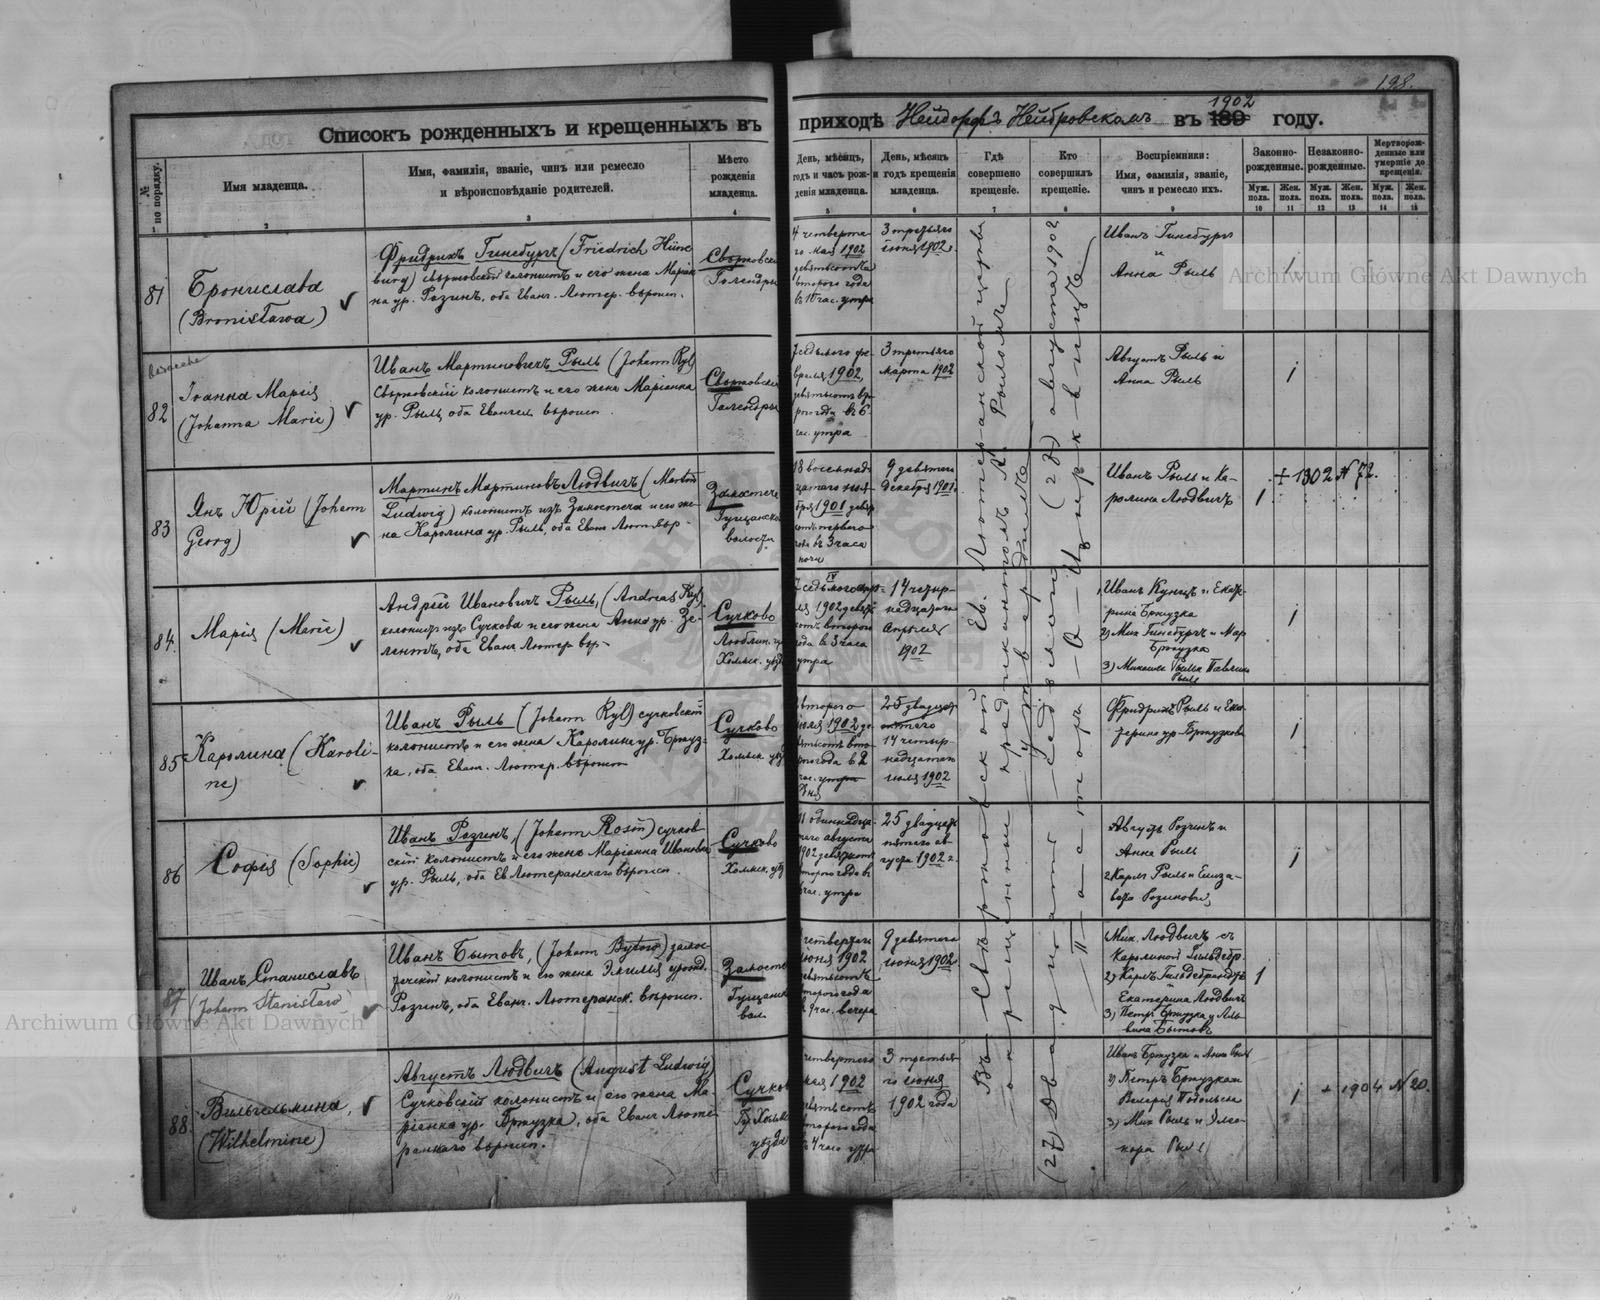 198.
Списокъ рожденныхъ и крещенныхъ въ приходѣ Нейдорфъ Нейбровскомъ въ 189 1902 году.
№ по порядку.
Имя младенца.
Имя, фамилія, званіе, чинъ или ремесло
и вѣроисповѣданіе родителей.
Мѣсто
рожденія
младенца.
День, мѣсяцъ,
годъ и часъ рож-
денія младенца.
День, мѣсяцъ
и годъ крещенія
младенца.
Гдѣ
совершено
крещеніе.
Кто
совершилъ
крещеніе.
Воспріемники:
Имя, фамилія, званіе,
чинъ и ремесло ихъ.
Законно-
рожденные.
Незаконно-
рожденные.
Мертворож-
денные или
умершіе до
крещенія.
Муж. пола.
Жен. пола.
Муж. пола.
Жен. пола.
Муж. пола.
Жен. пола.
1 2 3 4 5 6 7 8 9 10 11 12 13 14 15
81
Бронислава
(Bronisława)
Фридрихъ Гинсбургъ (Friedrich Hünc
burg) свержовскій колонистъ и его жена Маріян
на ур. Розинъ, оба Еванг. Лютер. вѣроисп.
Свержовскі
Голендры
4 четверта
го мая 1902
девятьсотъ
второго года
въ 10 час. утра
3 третьяго
іюня 1902 г.
Иванъ Гинсбургъ
и
Анна Рыль
1
82
Іоанна Марія
(Johanna Marie)
Иванъ Мартиновичъ Рыль (Johann Ryl)
Свержовскій колонистъ и его жена Маріанна
ур. Рыль, оба Евангел. вѣроисп.
Свержовскі
Голендры
7 седьмого фе
враля 1902,
девятьсотъ вто
рого года въ 6
час. утра
3 третьяго
марта 1902
Августъ Рыль и
Анна Рыль
1
83
Янъ Юрій (Johann
Georg)
Мартинъ Мартиновъ Людвигъ (Martin
Ludwig) колонистъ изъ Замостеча и его же
на Каролина ур. Рыль, оба Еванг. Лют. вѣр.
Замостече
Гущанской
волости
18 восемнад
цатого ноя
бря 1901 девят
сотъ перваго
года въ 3 часа
ночи
9 девятого
декабря 1901.
Иванъ Рыль и Ка-
ролина Людвигъ
1
+ 1902 № 72.
84
Марія (Marie)
Андрей Ивановичъ Рыль, (Andreas Ryl)
колонистъ изъ Сучкова и его жена Анна ур. Зе-
лентъ, оба Еванг. Лютер. вѣр.
Сучково
Люблин. гу
Холмск. уѣзд
IV
7 седьмого апрѣ
ля 1902 девят
сотъ второго
года въ 3 часа
утра
14 четыр-
надцатаго
Апрѣля
1902
Иванъ Кунцъ и Екате-
рина Бржузка
2) Мих. Гинсбургъ и Мар.
Бржузка
3) Михаилъ Рыль и Павлина
Рыль
1
85
Каролина (Karoli-
ne)
Иванъ Рыль (Johann Ryl) сучковскій
колонистъ и его жена Каролина ур. Бржуз-
ка, оба Еванг. Лютер. вѣроисп.
Сучково
Холмск. уѣзд
второго
іюля 1902 де
вятьсотъ вто
рого года въ 2
час. утра
дня
25 двадцат
пятого
14 четыр
надцатаго
іюля 1902
Фридрихъ Рыль и Ека-
терина ур. Бржузкова
1
86
Софія (Sophie)
Иванъ Розинъ (Johann Rosin) сучков
скій колонистъ и его жена Маріанна Ивановна
ур. Рыль, оба Ев. Лютеранскаго вѣроисп.
Сучково
Холмск. уѣз
11 одинадца
таго августа
1902 девятьсотъ
второго года въ
час. утра
25 двадцать
пятого ав-
густа 1902 г.
Августъ Розинъ и
Анна Рыль
2 Карлъ Рыль и Елиза-
вета Розинова
1
87
Иванъ Станиславъ
(Johann Stanisław)
Иванъ Бытовъ, (Johann Bytow) замос
течскій колонистъ и его жена Эмилія урожд.
Розинъ, оба Еванг. Лютеранск. вѣроисп.
Замосте
Гущанск
вол.
четвертаго
іюня 1902
девятьсотъ
второго года
в 9 час. вечера
9 девятого
іюня 1902
Мих. Людвигъ съ
Каролиной Гильдебр.
2) Карлъ Гильдебрандтъ
и
Екатерина Людвигъ
3) Петръ Бржузка и Аль-
вина Бытовъ
1
88
Вильгельмина,
(Wilhelmine)
Августъ Людвигъ (August Ludwig)
Сучковскій колонистъ и его жена Ма-
ріанна ур. Бржузка, оба Еванг. Люте-
ранскаго вѣроисп.
Сучков
Гу Холмс
уѣзда
четвертого
мая 1902
девятьсотъ
второго года
въ 4 часа утра
3 третья
го іюня
1902 года
Иванъ Бржузка и Анна Рыль
2) Петръ Бржузка и
Валерія Подольска
3) Мих. Рыль и Элео-
нора Рыль
1
+ 1904 № 20.
Въ Свержовской Ев. Лютеранской церкви
окрещенные предикантомъ А. Рылемъ
утвердилъ
(27) Двадцать седьмой (27) августа 1902
Пасторъ О. Цверквицъ
Archiwum Główne Akt Dawnych
Archiwum Główne Akt Dawnych